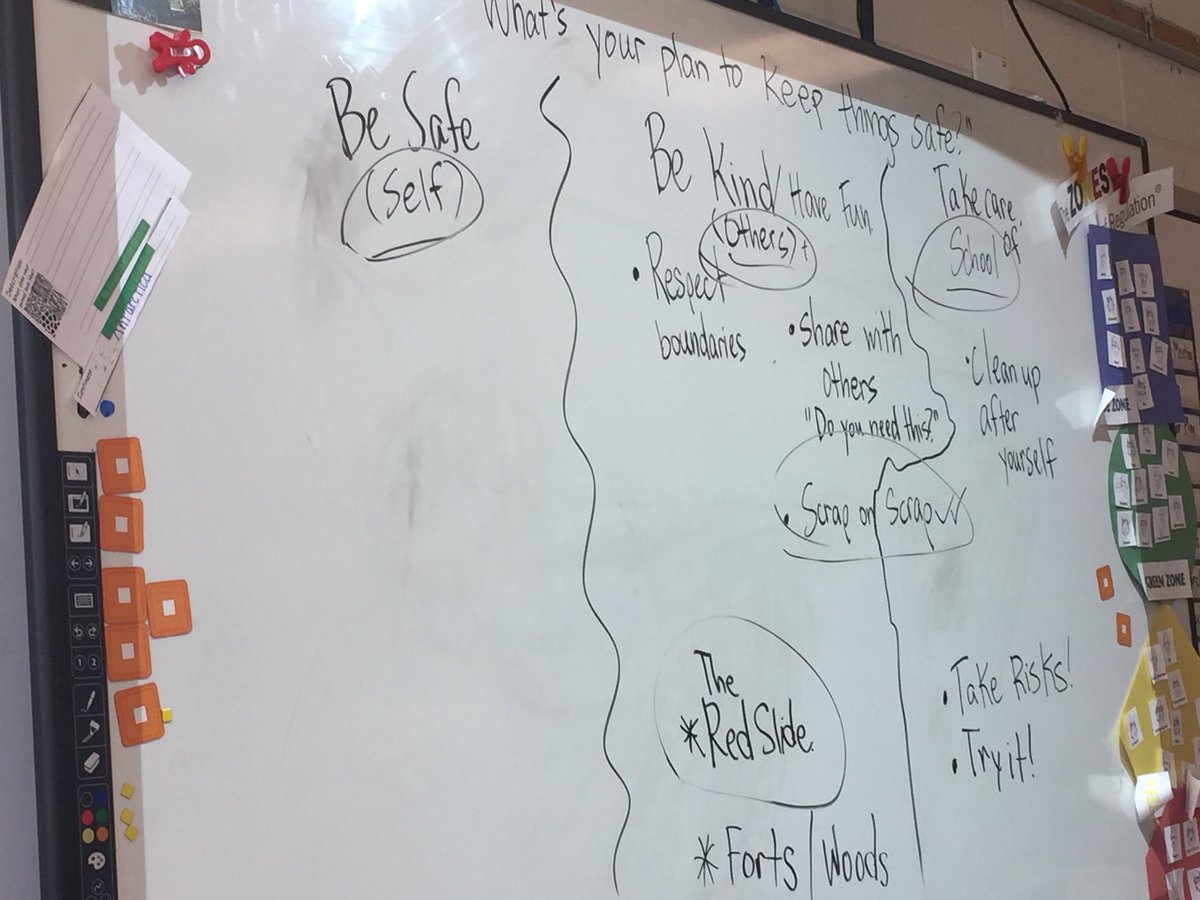 What's your plan to keep things safe?"
Be Safe
(Self)
Be Kind/Have Fun
(Others)+
• Respect
boundaries
• Share with
others
"Do you need this?"
• Scrap or Scrap
The
*Red Slide.
*Forts/Woods
Take care
of
School
• Clean up
after
yourself
• Take Risks!
• Try it!
The ZONES
Regulation®
ZONE
GREEN ZONE
Antarctica
Continent
1 2